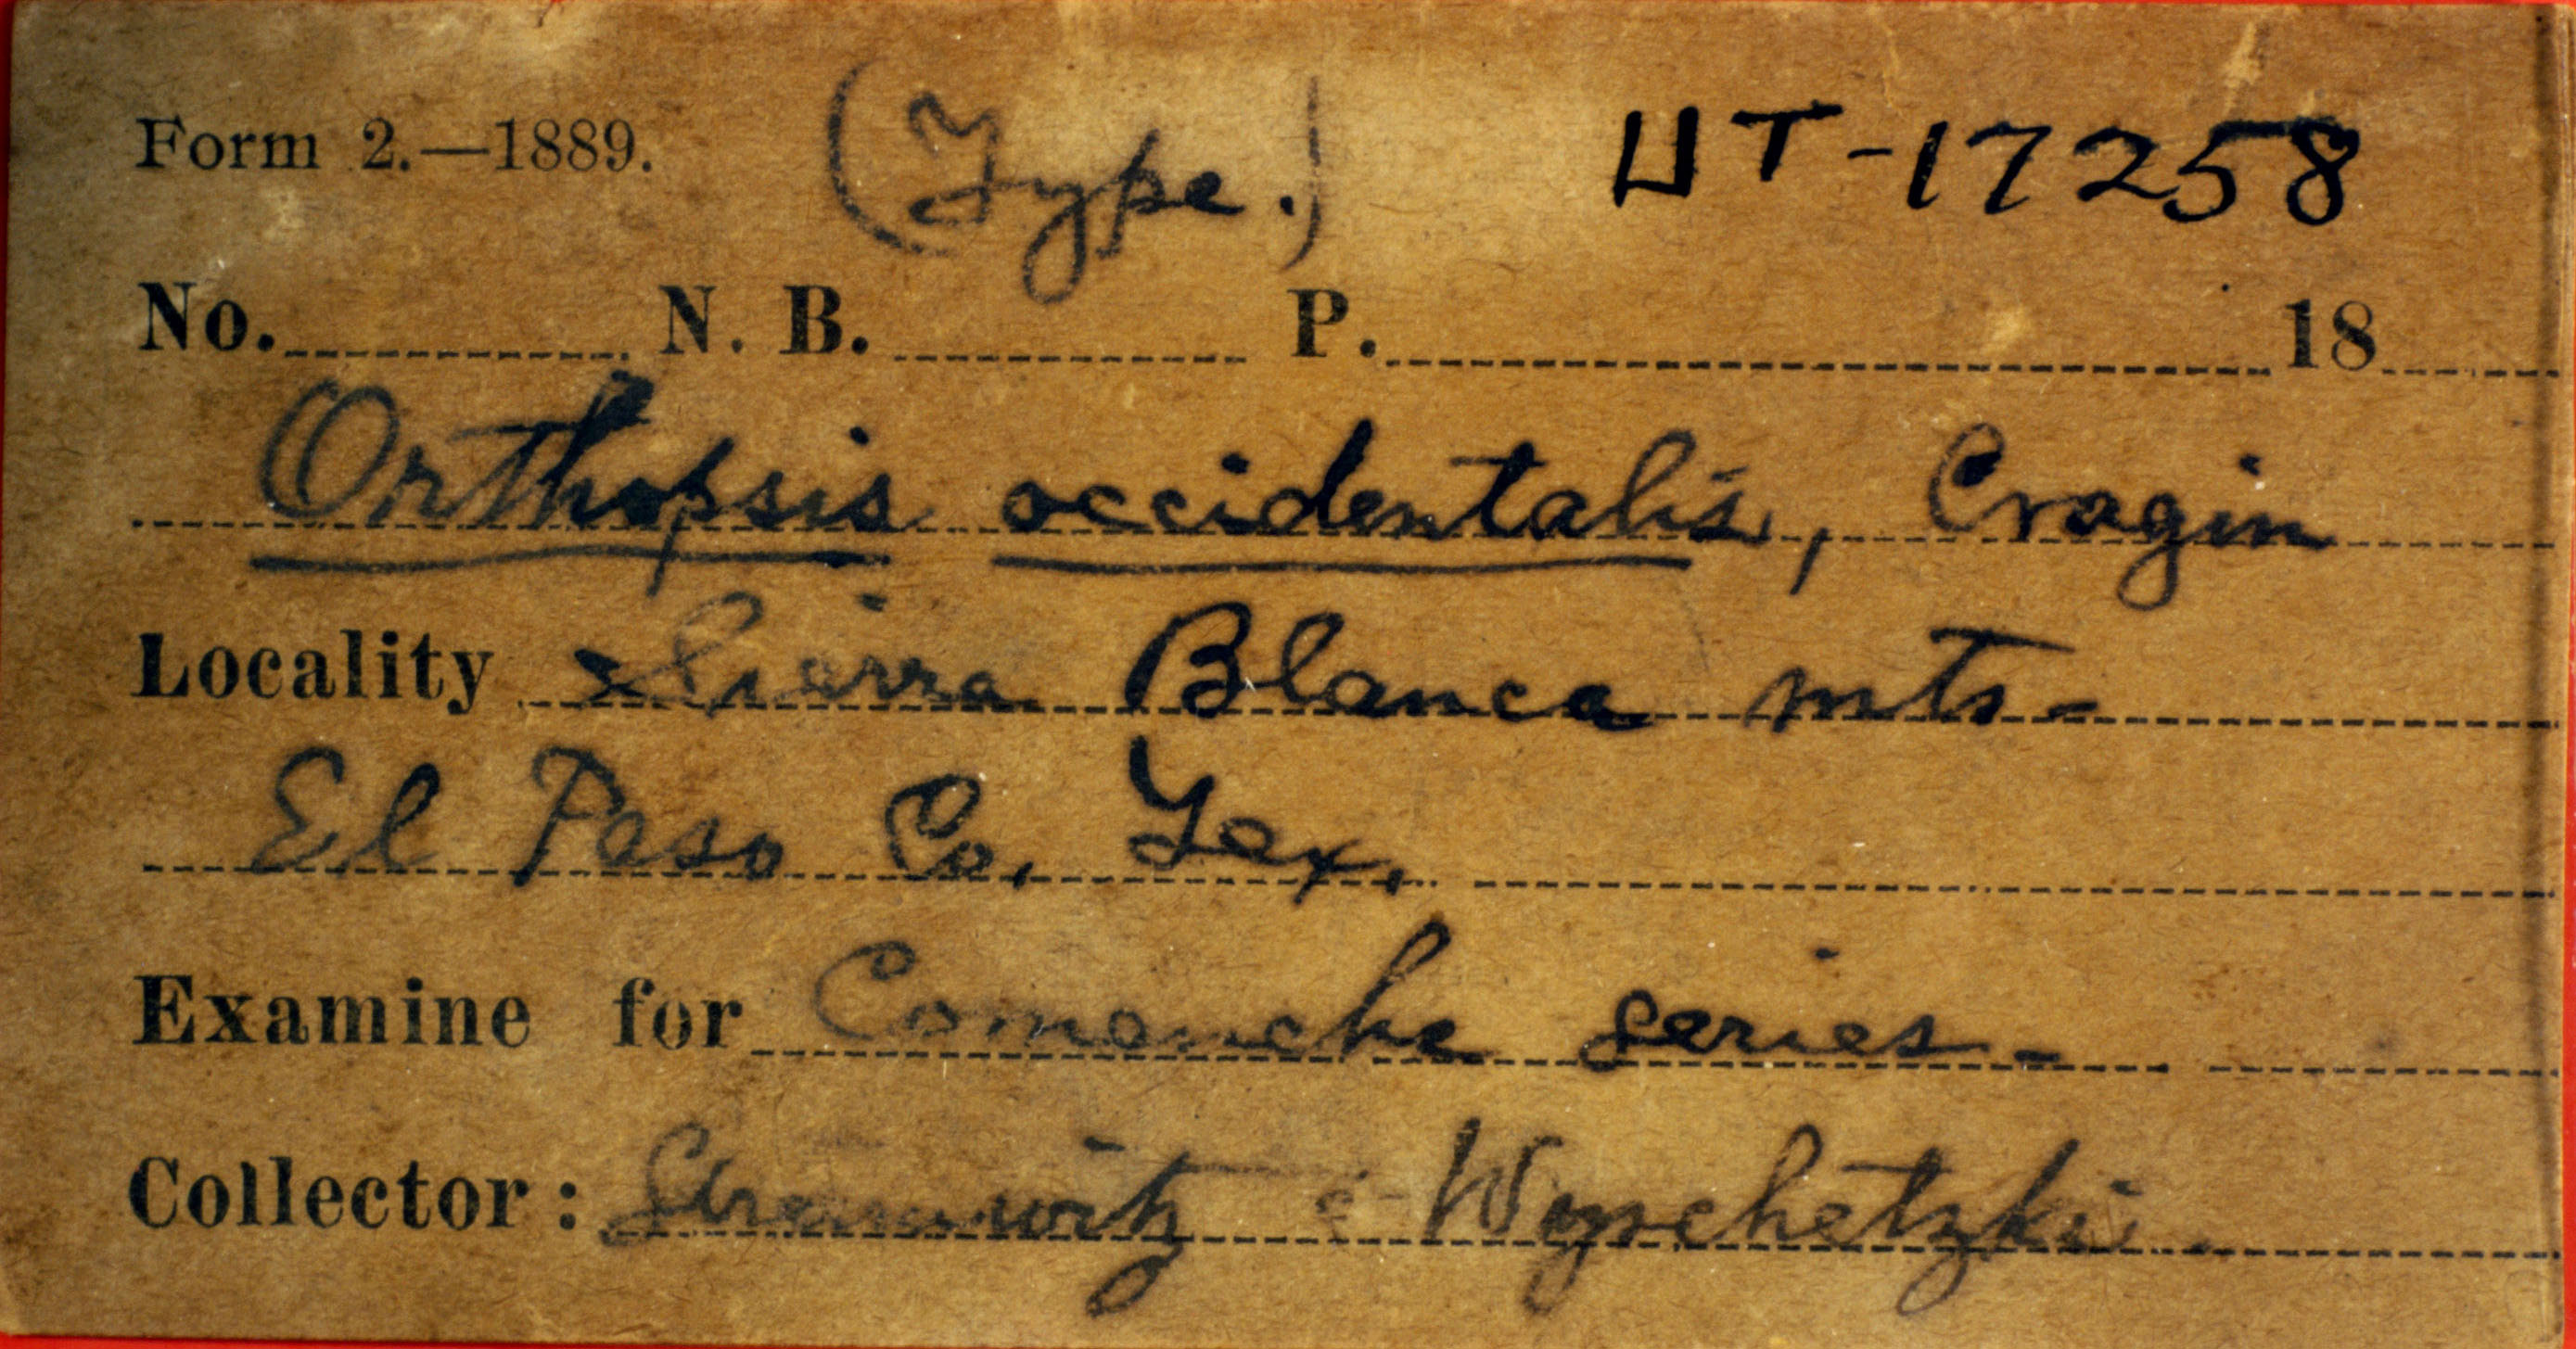 Form 2.—1889. (Type.) UT-17258
No. N. B. P. 18
Orthopsis occidentalis, Cragin
Locality Sierra Blanca mts-
El Paso Co. Tex.
Examine for Comanche series-
Collector: Wyschetzki.